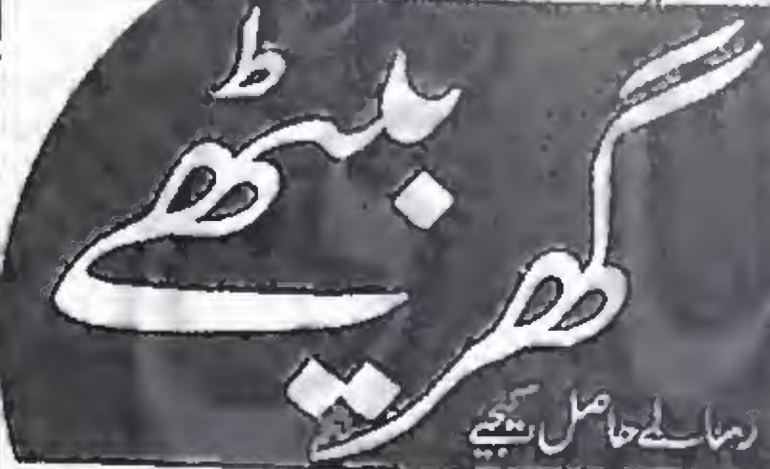 گھر بیٹھے
رسالے حاصل کیجیے